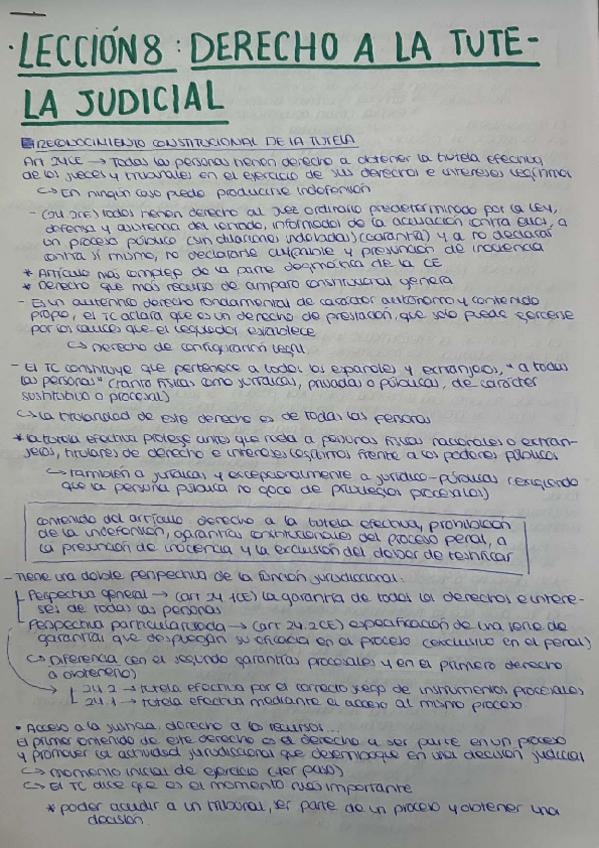 · LECCIÓN 8 : DERECHO A LA TUTE-
LA JUDICIAL
RECONOCIMIENTO CONSTITUCIONAL DE LA TUTELA
Art 24CE → Todas las personas tienen derecho a obtener la tutela efectiva
de los jueces y tribunales en el ejercicio de sus derechos e intereses legítimos
↳ En ningún caso puede producirse indefensión
- (24.2CE) todos tienen derecho al juez ordinario predeterminado por la ley,
defensa y asistencia del letrado, informados de la acusación contra ellos, a
un proceso público (sin dilaciones indebidas) (garantía) y a no declarar
contra sí mismo, no declararse culpable y presunción de inocencia
* Artículo más complejo de la parte dogmática de la CE
* Derecho que más recurso de amparo constitucional genera
- Es un auténtico derecho fundamental de carácter autónomo y contenido
propio, el TC aclara que es un derecho de prestación, que solo puede ejercerse
por los cauces que el legislador establece
↳ Derecho de configuración legal.
- El TC construye que pertenece a todos los españoles y extranjeros, "a todas
las personas" (tanto físicas como jurídicas, privadas o públicas, de carácter
sustitutivo o procesal)
↳ La titularidad de este derecho es de todas las personas
* La tutela efectiva protege antes que nada a personas físicas nacionales o extran-
jeros, titulares de derecho e intereses legítimos frente a los poderes públicos
↳ también a jurídicas y excepcionalmente a jurídico-públicas (exigiendo
que la persona pública no goce de privilegios procesales)
contenido del artículo: derecho a la tutela efectiva, prohibición
de la indefensión, garantías constitucionales del proceso penal, a
la presunción de inocencia y la exclusión del deber de testificar
- Tiene una doble perspectiva de la función jurisdiccional:
Perspectiva general → (art 24.1CE) la garantía de todos los derechos e intere-
ses de todas las personas
Perspectiva particularizada → (art 24.2CE) especificación de una serie de
garantías que despliegan su eficacia en el proceso (exclusivo en el penal)
↳ Diferencia (en el segundo garantías procesales y en el primero derecho
a obtenerlo)
→ 24.2 → tutela efectiva por el correcto juego de instrumentos procesales
24.1 → tutela efectiva mediante el acceso al mismo proceso
• Acceso a la justicia, derecho a los recursos...
El primer contenido de este derecho es el derecho a ser parte en un proceso
y promover la actividad jurisdiccional que desemboque en una decisión judicial
↳ momento inicial de ejercicio (1er paso)
↳ El TC dice que es el momento más importante
* poder acudir a un tribunal, ser parte de un proceso y obtener una
decisión.